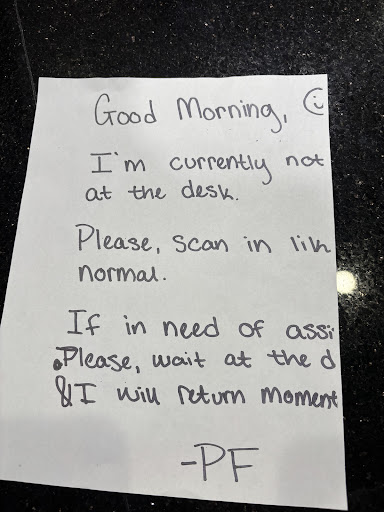 Good Morning, 
I'm currently not
at the desk.
Please, scan in lik
normal.
If in need of assi
Please, wait at the d
& I will return moment
-PF